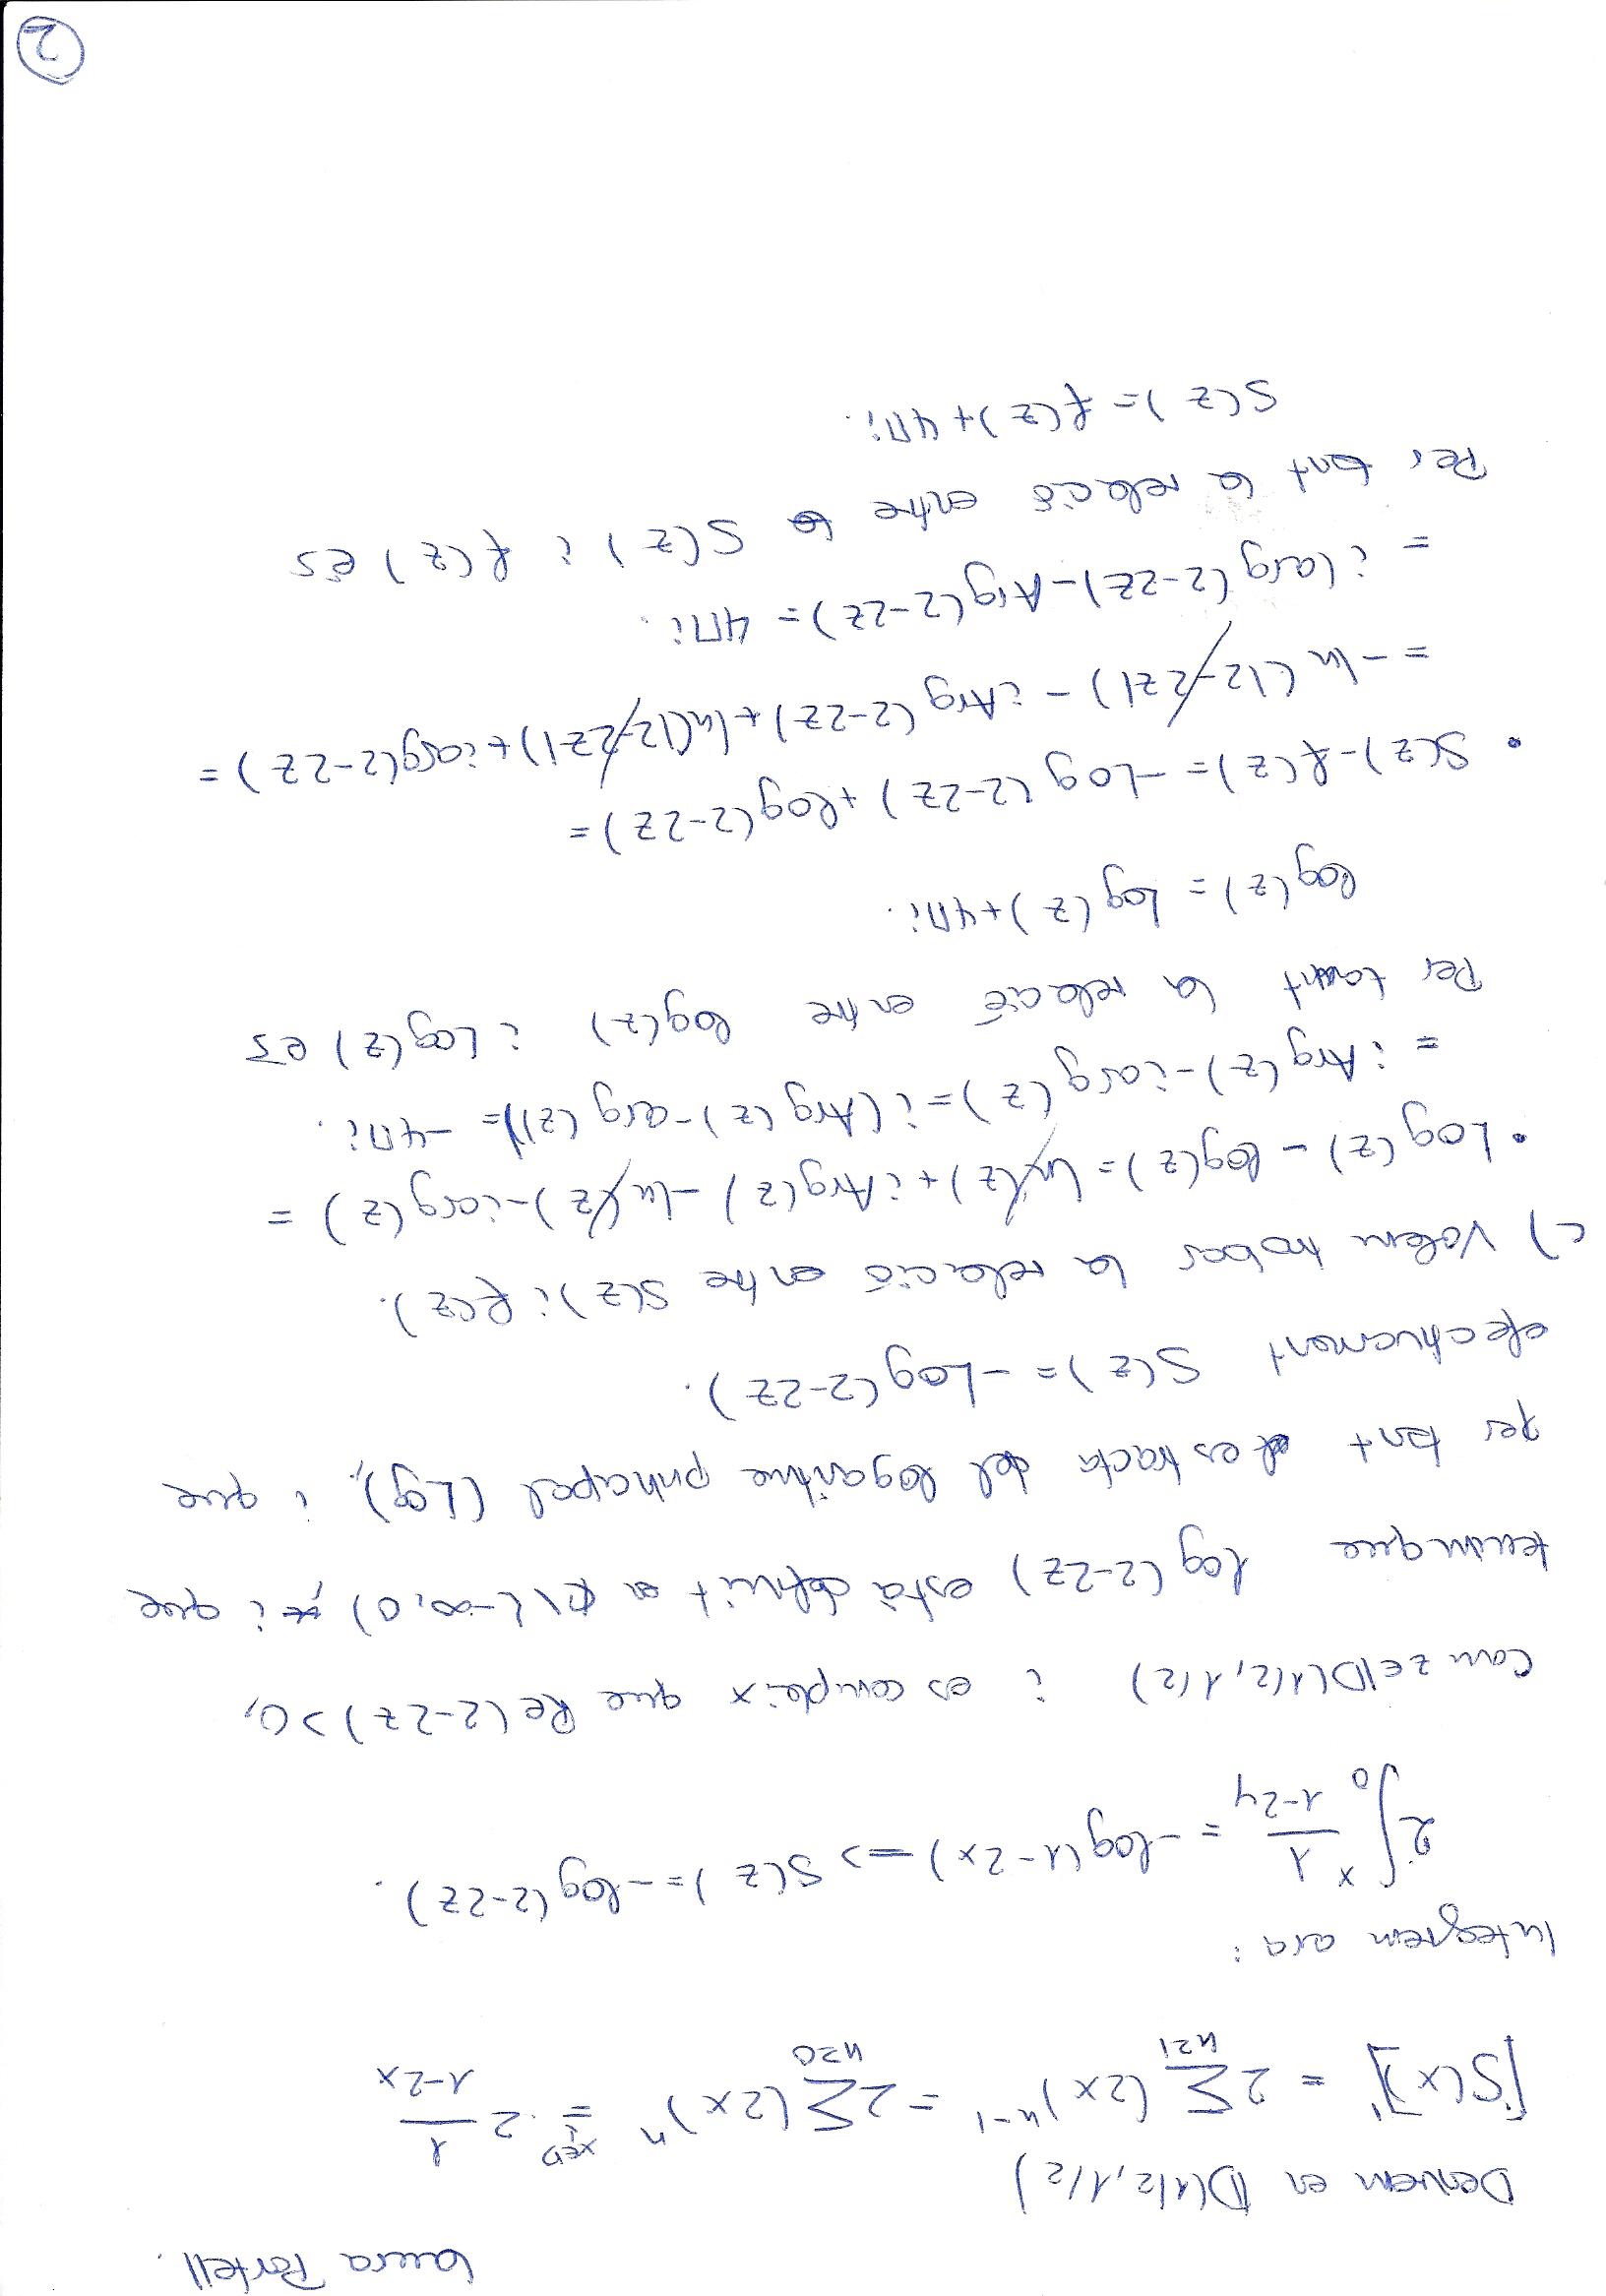 Laura Portell.
Derivem en D(1/2, 1/2)
[S(x)]' = 2 Σ_{n≥1} (2x)^{n-1} = 2 Σ_{n≥0} (2x)^n =_{x∈D} 2 1/(1-2x)
Integrem ara:
2∫_0^x 1/(1-2y) = -log(1-2x) => S(z) = -log(2-2z).
Com z∈D(1/2, 1/2) i es compleix que Re(2-2z)>0,
tenim que log(2-2z) està definit a ℂ\(-∞,0) i que
per tant es tracta del logaritme principal (Log), i que
efectivament S(z) = -Log(2-2z).
c) Volem trobar la relació entre S(z) i f(z).
• Log(z) - log(z) = ln(z) + iArg(z) - ln(z) - iarg(z) =
= iArg(z) - iarg(z) = i(Arg(z) - arg(z)) = -4πi.
Per tant la relació entre log(z) i Log(z) es
log(z) = Log(z) + 4πi.
• S(z) - f(z) = -Log(2-2z) + log(2-2z) =
= -ln(|2-2z|) - iArg(2-2z) + ln(|2-2z|) + iarg(2-2z) =
= i(arg(2-2z) - Arg(2-2z) = 4πi.
Per tant la relació entre S(z) i f(z) es
S(z) = f(z) + 4πi.
2